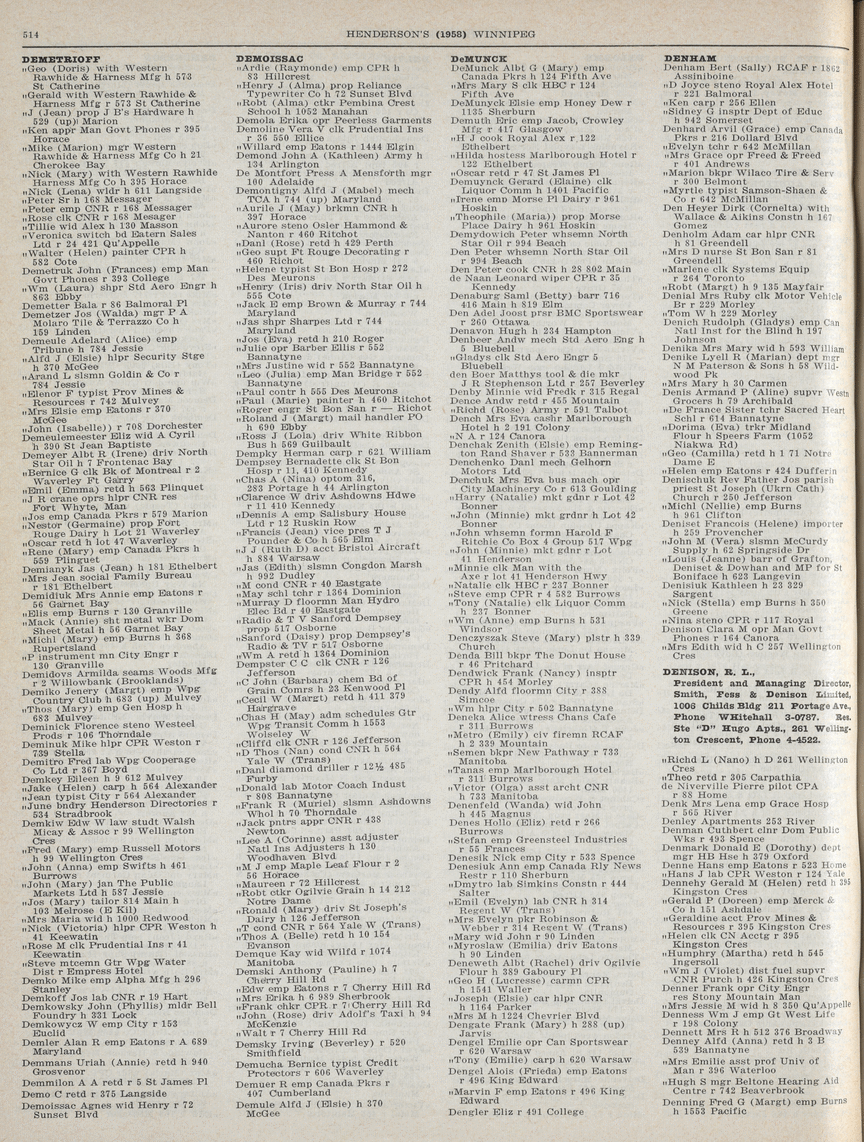 514
HENDERSON'S (1958) WINNIPEG
DEMETRIOFF
„Geo (Doris) with Western
Rawhide & Harness Mfg h 573
St Catherine
„Gerald with Western Rawhide &
Harness Mfg r 573 St Catherine
„J (Jean) prop J B's Hardware h
529 (up)i Marion
„Ken appr Man Govt Phones r 395
Horace
„Mike (Marion) mgr Western
Rawhide & Harness Mfg Co h 21
Cherokee Bay
„Nick (Mary) with Western Rawhide
Harness Mfg Co h 395 Horace
„Nick (Lena) wldr h 611 Langside
„Peter Sr h 168 Messager
„Peter emp CNR r 168 Messager
„Rose clk CNR r 168 Mesager
„Tillie wid Alex h 130 Masson
„Veronica switch bd Eatern Sales
Ltd r 24 421 Qu'Appelle
„Walter (Helen) painter CPR h
582 Cote
Demetruk John (Frances) emp Man
Govt Phones r 393 College
„Wm (Laura) shpr Std Aero Engr h
863 Ebby
Demetter Bala r 86 Balmoral Pl
Demetzer Jos (Walda) mgr P A
Molaro Tile & Terrazzo Co h
159 Linden
Demeule Adelard (Alice) emp
Tribune h 784 Jessie
„Alfd J (Elsie) hlpr Security Stge
h 370 McGee
„Arand L slsmn Goldin & Co r
784 Jessie
„Elenor F typist Prov Mines &
Resources r 742 Mulvey
„Mrs Elsie emp Eatons r 370
McGee
„John (Isabelle)) r 708 Dorchester
Demeulemeester Eliz wid A Cyril
h 390 St Jean Baptiste
Demeyer Albt R (Irene) driv North
Star Oil h 7 Frontenac Bay
„Bernice G clk Bk of Montreal r 2
Waverley Ft Garry
„Emil (Emma) retd h 563 Plinquet
„J R crane oprs hlpr CNR res
Fort Whyte, Man
„Jos emp Canada Pkrs r 579 Marion
„Nestor (Germaine) prop Fort
Rouge Dairy h Lot 21 Waverley
„Oscar retd h lot 47 Waverley
„Rene (Mary) emp Canada Pkrs h
559 Plinguet
Demianyk Jas (Jean) h 181 Ethelbert
„Mrs Jean social Family Bureau
r 181 Ethelbert
Demidiuk Mrs Annie emp Eatons r
56 Garnet Bay
„Elis emp Burns r 130 Granville
„Mack (Annie) sht metal wkr Dom
Sheet Metal h 56 Garnet Bay
„Michl (Mary) emp Burns h 368
Rupertsland
„P instrument mn City Engr r
130 Granville
Demidovs Armilda seams Woods Mfg
r 2 Willowbank (Brooklands)
Demiko Jenery (Margt) emp Wpg
Country Club h 683 (up) Mulvey
„Thos (Mary) emp Gen Hosp h
683 Mulvey
Deminick Florence steno Westeel
Prods r 106 Thorndale
Deminuk Mike hlpr CPR Weston r
739 Stella
Demitro Fred lab Wpg Cooperage
Co Ltd r 367 Boyd
Demkey Eileen h 9 612 Mulvey
„Jake (Helen) carp h 564 Alexander
„Jean typist City r 564 Alexander
„June bndry Henderson Directories r
534 Stradbrook
Demkiw Edw W law studt Walsh
Micay & Assoc r 99 Wellington
Cres
„Fred (Mary) emp Russell Motors
h 99 Wellington Cres
„John (Anna) emp Swifts h 461
Burrows
„John (Mary) jan The Public
Markets Ltd h 587 Jessie
„Jos (Mary) tailor 814 Main h
103 Melrose (E Kil)
„Mrs Maria wid h 1000 Redwood
„Nick (Victoria) hlpr CPR Weston h
41 Keewatin
„Rose M clk Prudential Ins r 41
Keewatin
„Steve mtcemn Gtr Wpg Water
Dist r Empress Hotel
Demko Mike emp Alpha Mfg h 296
Stanley
Demkoff Jos lab CNR r 19 Hart
Demkowsky John (Phyllis) mldr Bell
Foundry h 331 Lock
Demkowycz W emp City r 153
Euclid
Demler Alan R emp Eatons r A 689
Maryland
Demmans Uriah (Annie) retd h 940
Grosvenor
Demmilon A A retd r 5 St James Pl
Demo C retd r 375 Langside
Demoissac Agnes wid Henry r 72
Sunset Blvd
DEMOISSAC
„Ardie (Raymonde) emp CPR h
83 Hillcrest
„Henry J (Alma) prop Reliance
Typewriter Co h 72 Sunset Blvd
„Robt (Alma) ctkr Pembina Crest
School h 1052 Manahan
Demola Erika opr Peerless Garments
Demoline Vera V clk Prudential Ins
r 36 550 Ellice
„Willard emp Eatons r 1444 Elgin
Demond John A (Kathleen) Army h
134 Arlington
De Montfort Press A Mensforth mgr
100 Adelaide
Demontigny Alfd J (Mabel) mech
TCA h 744 (up) Maryland
„Aurile J (May) brkmn CNR h
397 Horace
„Aurore steno Osler Hammond &
Nanton r 460 Ritchot
„Danl (Rose) retd h 429 Perth
„Geo supt Ft Rouge Decorating r
460 Richot
„Helene typist St Bon Hosp r 272
Des Meurons
„Henry (Iris) driv North Star Oil h
555 Cote
„Jack E emp Brown & Murray r 744
Maryland
„Jas shpr Sharpes Ltd r 744
Maryland
„Jos (Eva) retd h 210 Roger
„Julie opr Barber Ellis r 552
Bannatyne
„Mrs Justine wid r 552 Bannatyne
„Leo (Julia) emp Man Bridge r 552
Bannatyne
„Paul contr h 555 Des Meurons
„Paul (Marie) painter h 460 Ritchot
„Roger engr St Bon San r — Richot
„Roland J (Margt) mail handler PO
h 690 Ebby
„Ross J (Lola) driv White Ribbon
Bus h 569 Guilbault
Dempky Herman carp r 621 William
Dempsey Bernadette clk St Bon
Hosp r 11, 410 Kennedy
„Chas A (Nina) optom 316,
283 Portage h 44 Arlington
„Clarence W driv Ashdowns Hdwe
r 11 410 Kennedy
„Dennis A emp Salisbury House
Ltd r 12 Ruskin Row
„Francis (Jean) vice pres T J
Pounder & Co h 565 Elm
„J J (Ruth D) acct Bristol Aircraft
h 884 Warsaw
„Jas (Edith) slsmn Congdon Marsh
h 992 Dudley
„M cond CNR r 40 Eastgate
„May schl tchr r 1364 Dominion
„Murray D floormn Man Hydro
Elec Bd r 40 Eastgate
„Radio & T V Sanford Dempsey
prop 517 Osborne
„Sanford (Daisy) prop Dempsey's
Radio & TV r 517 Osborne
„Wm A retd h 1364 Dominion
Dempster C C clk CNR r 126
Jefferson
„C John (Barbara) chem Bd of
Grain Comrs h 23 Kenwood Pl
„Cecil W (Margt) retd h 411 379
Hargrave
„Chas H (May) adm schedules Gtr
Wpg Transit Comm h 1553
Woiseley W
„Cliffd clk CNR r 126 Jefferson
„D Thos (Nan) cond CNR h 564
Yale W (Trans)
„Danl diamond driller r 12½ 485
Furby
„Donald lab Motor Coach Indust
r 808 Bannatyne
„Frank R (Muriel) slsmn Ashdowns
Whol h 70 Thorndale
„Jack pntrs appr CNR r 438
Newton
„Lee A (Corinne) asst adjuster
Natl Ins Adjusters h 130
Woodhaven Blvd
„M J emp Maple Leaf Flour r 2
56 Horace
„Maureen r 72 Hillcrest
„Robt ctkr Ogilvie Grain h 14 212
Notre Dame
„Ronald (Mary) driv St Joseph's
Dairy h 126 Jefferson
„T cond CNR r 564 Yale W (Trans)
„Thos A (Belle) retd h 10 154
Evanson
Demque Kay wid Wilfd r 1074
Manitoba
Demski Anthony (Pauline) h 7
Cherry Hill Rd
„Edw emp Eatons r 7 Cherry Hill Rd
„Mrs Erika h 6 989 Sherbrook
„Frank chkr CPR r 7 Cherry Hill Rd
„John (Rose) driv Adolf's Taxi h 94
McKenzie
„Walt r 7 Cherry Hill Rd
Demsky Irving (Beverley) r 520
Smithfield
Demucha Bernice typist Credit
Protectors r 606 Waverley
Demuer R emp Canada Pkrs r
407 Cumberland
Demule Alfd J (Elsie) h 370
McGee
DeMUNCK
DeMunck Albt G (Mary) emp
Canada Pkrs h 124 Fifth Ave
„Mrs Mary S clk HBC r 124
Fifth Ave
DeMunyck Elsie emp Honey Dew r
1135 Sherburn
Demuth Eric emp Jacob, Crowley
Mfg r 417 Glasgow
„H J cook Royal Alex r 122
Ethelbert
„Hilda hostess Marlborough Hotel r
122 Ethelbert
„Oscar retd r 47 St James Pl
Demuynck Gerard (Elaine) clk
Liquor Comm h 1401 Pacific
„Irene emp Morse Pl Dairy r 961
Hoskin
„Theophile (Maria)) prop Morse
Place Dairy h 961 Hoskin
Demydowich Peter whsemn North
Star Oil r 994 Beach
Den Peter whsemn North Star Oil
r 994 Beach
Den Peter cook CNR h 28 802 Main
de Naan Leonard wiper CPR r 35
Kennedy
Denaburg Saml (Betty) barr 716
416 Main h 819 Elm
Den Adel Joost prsr BMC Sportswear
r 260 Ottawa
Denavon Hugh h 234 Hampton
Denbeer Andw mech Std Aero Eng h
5 Bluebell
„Gladys clk Std Aero Engr 5
Bluebell
den Boer Matthys tool & die mkr
J R Stephenson Ltd r 257 Beverley
Denby Minnie wid Fredk r 315 Regal
Dence Andw retd r 455 Mountain
„Richd (Rose) Army r 591 Talbot
Dench Mrs Eva cashr Marlborough
Hotel h 2 191 Colony
„N A r 124 Canora
Denchak Zenith (Elsie) emp Reming-
ton Rand Shaver r 533 Bannerman
Denchenko Danl mech Gelhorn
Motors Ltd
Denchuk Mrs Eva bus mach opr
City Machinery Co r 613 Goulding
„Harry (Natalie) mkt gdnr r Lot 42
Bonner
„John (Minnie) mkt grdnr h Lot 42
Bonner
„John whsemn formn Harold F
Ritchie Co Box 4 Group 517 Wpg
„John (Minnie) mkt gdnr r Lot
41 Henderson
„Minnie clk Man with the
Axe r lot 41 Henderson Hwy
„Natalie clk HBC r 237 Bonner
„Steve emp CPR r 4 582 Burrows
„Tony (Natalie) clk Liquor Comm
h 237 Bonner
„Wm (Anne) emp Burns h 531
Windsor
Denczyszak Steve (Mary) plstr h 339
Church
Denda Bill bkpr The Donut House
r 46 Pritchard
Dendwick Frank (Nancy) insptr
CPR h 454 Morley
Dendy Alfd floormn City r 388
Simcoe
„Wm hlpr City r 502 Bannatyne
Deneka Alice wtress Chans Cafe
r 311 Burrows
„Metro (Emily) civ firemn RCAF
h 2 339 Mountain
„Semen bkpr New Pathway r 733
Manitoba
„Tanas emp Marlborough Hotel
r 311 Burrows
„Victor (Olga) asst archt CNR
h 733 Manitoba
Denenfeld (Wanda) wid John
h 445 Magnus
Denes Hollo (Eliz) retd r 266
Burrows
„Stefan emp Greensteel Industries
r 55 Frances
Denesik Nick emp City r 533 Spence
Denesiuk Ann emp Canada Rly News
Restr r 110 Sherburn
„Dmytro lab Simkins Constn r 444
Salter
„Emil (Evelyn) lab CNR h 314
Regent W (Trans)
„Mrs Evelyn pkr Robinson &
Webber r 314 Regent W (Trans)
„Mary wid John r 90 Linden
„Myroslaw (Emilia) driv Eatons
h 90 Linden
Deneweth Albt (Rachel) driv Ogilvie
Flour h 389 Gaboury Pl
„Geo H (Lucresse) carmn CPR
h 1541 Waller
„Joseph (Elsie) car hlpr CNR
h 1164 Parker
„Mrs M h 1224 Chevrier Blvd
Dengate Frank (Mary) h 288 (up)
Jarvis
Dengel Emilie opr Can Sportswear
r 620 Warsaw
„Tony (Emilie) carp h 620 Warsaw
Dengel Alois (Frieda) emp Eatons
r 496 King Edward
„Marvin F emp Eatons r 496 King
Edward
Dengler Eliz r 491 College
DENHAM
Denham Bert (Sally) RCAF r 1862
Assiniboine
„D Joyce steno Royal Alex Hotel
r 221 Balmoral
„Ken carp r 256 Ellen
„Sidney G insptr Dept of Educ
h 942 Somerset
Denhard Arvil (Grace) emp Canada
Pkrs r 216 Dollard Blvd
„Evelyn tchr r 642 McMillan
„Mrs Grace opr Freed & Freed
r 401 Andrews
„Marion bkpr Wilaco Tire & Serv
r 300 Belmont
„Myrtle typist Samson-Shaen &
Co r 642 McMillan
Den Heyer Dirk (Cornelta) with
Wallace & Aikins Constn h 167
Gomez
Denholm Adam car hlpr CNR
h 81 Greendell
„Mrs D nurse St Bon San r 81
Greendell
„Marlene clk Systems Equip
r 264 Toronto
„Robt (Margt) h 9 135 Mayfair
Denial Mrs Ruby clk Motor Vehicle
Br r 229 Morley
„Tom W h 229 Morley
Denich Rudolph (Gladys) emp Can
Natl Inst for the Blind h 197
Johnson
Denika Mrs Mary wid h 593 William
Denike Lyell R (Marian) dept mgr
N M Paterson & Sons h 58 Wild-
wood Pk
„Mrs Mary h 30 Carmen
Denis Armand P (Aline) supvr Westn
Grocers h 79 Archibald
„De France Sister tchr Sacred Heart
Schl r 614 Bannatyne
„Dorima (Eva) trkr Midland
Flour h Speers Farm (1052
Niakwa Rd)
„Geo (Camilla) retd h 1 71 Notre
Dame E
„Helen emp Eatons r 424 Dufferin
Denischuk Rev Father Jos parish
priest St Joseph (Ukrn Cath)
Church r 250 Jefferson
„Michl (Nellie) emp Burns
h 961 Clifton
Deniset Francois (Helene) importer
h 259 Provencher
„John M (Vera) slsmn McCurdy
Supply h 62 Springside Dr
„Louis (Jeanne) barr of Grafton,
Deniset & Dowhan and MP for St
Boniface h 623 Langevin
Denisiuk Kathleen h 23 329
Sargent
„Nick (Stella) emp Burns h 350
Greene
„Nina steno CPR r 117 Royal
Denison Clara M opr Man Govt
Phones r 164 Canora
„Mrs Edith wid h C 257 Wellington
Cres
DENISON, R. L.,
President and Managing Director,
Smith, Fess & Denison Limited,
1006 Childs Bldg 211 Portage Ave.,
Phone WHitehall 3-0787. Res.
Ste "D" Hugo Apts., 261 Welling-
ton Crescent, Phone 4-4522.
„Richd L (Nano) h D 261 Wellington
Cres
„Theo retd r 305 Carpathia
de Niverville Pierre pilot CPA
r 88 Home
Denk Mrs Lena emp Grace Hosp
r 565 River
Denley Apartments 253 River
Denman Cuthbert clnr Dom Public
Wks r 493 Spence
Denmark Donald E (Dorothy) dept
mgr HB Hse h 379 Oxford
Denne Hans emp Eatons r 523 Home
„Hans J lab CPR Weston r 124 Yale
Dennehy Gerald M (Helen) retd h 395
Kingston Cres
„Gerald P (Doreen) emp Merck &
Co h 151 Ashdale
„Geraldine acct Prov Mines &
Resources r 395 Kingston Cres
„Helen clk CN Acctg r 395
Kingston Cres
„Humphry (Martha) retd h 545
Ingersoll
„Wm J (Violet) dist fuel supvr
CNR Purch h 426 Kingston Cres
Denner Frank opr City Engr
res Stony Mountain Man
„Mrs Jessie M wid h 8 350 Qu'Appelle
Denness Wm J emp Gt West Life
r 198 Colony
Dennett Mrs R h 512 376 Broadway
Denney Alfd (Anna) retd h 3 B
539 Bannatyne
„Mrs Emilie asst prof Univ of
Man r 396 Waterloo
„Hugh S mgr Beltone Hearing Aid
Centre r 742 Beaverbrook
Denning Fred G (Margt) emp Burns
h 1553 Pacific